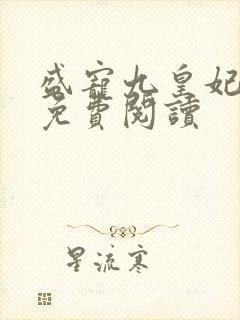 盛寵九皇妃
免費閱讀
星流寒